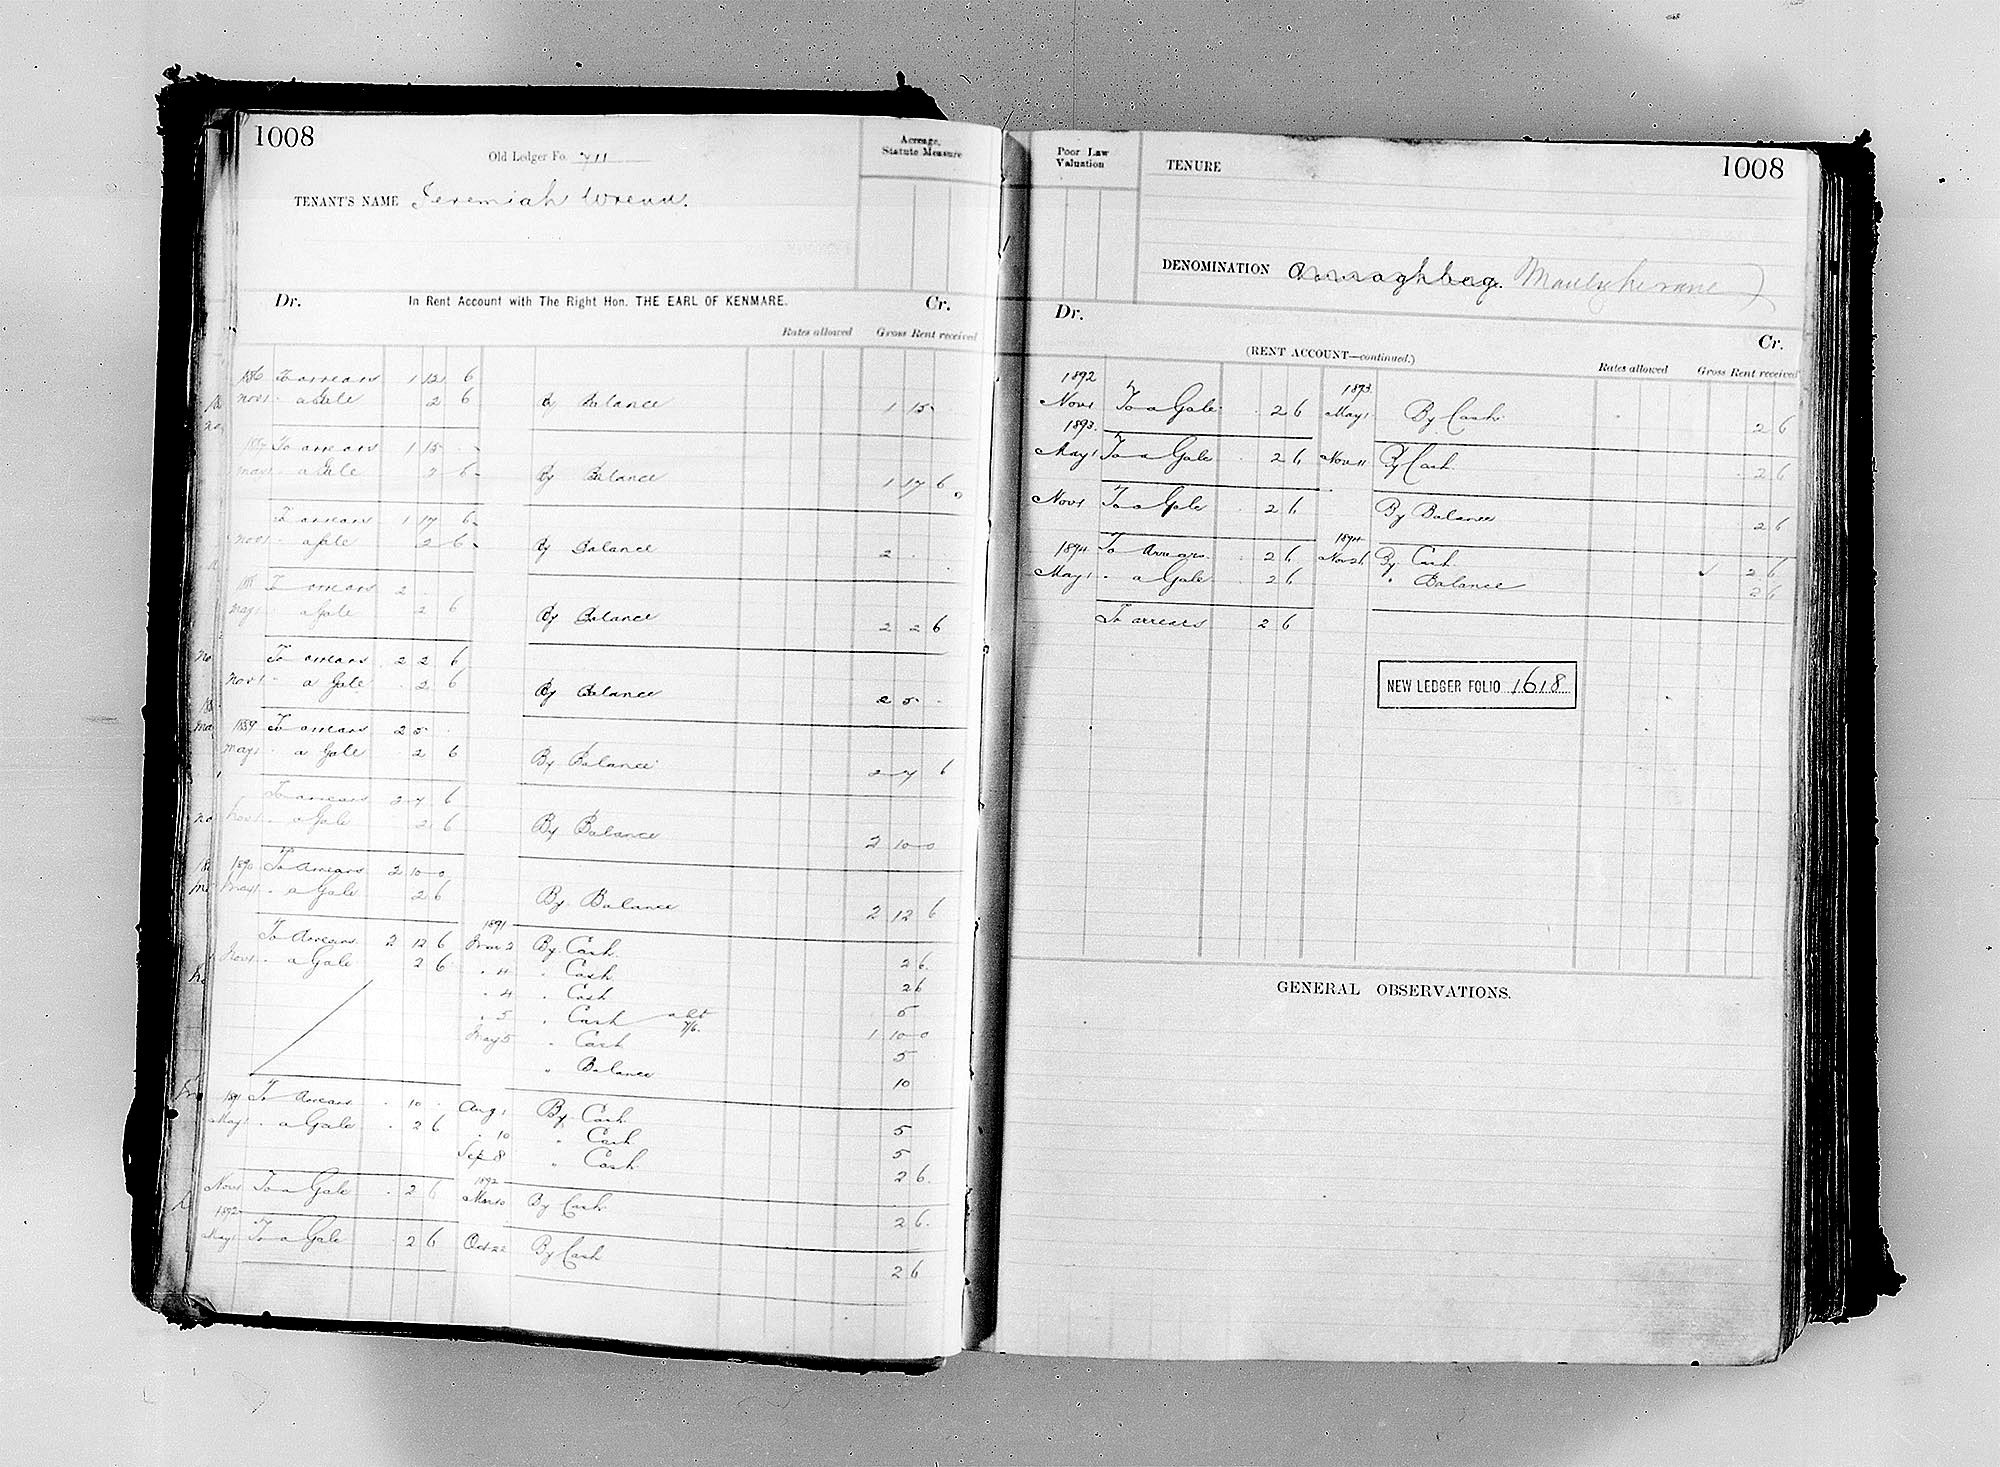 1008
Old Ledger Fo. 711
Acreage,
Statute Measure
TENANT'S NAME Jeremiah Wrenn.
Dr. In Rent Account with The Right Hon. THE EARL OF KENMARE. Cr.
Rates allowed Gross Rent received
1886 To arrears 1 12 6
Nov 1 " a Gale 2 6 By Balance 1 15 -
1887 To arrears 1 15 - -
May 1 " a Gale 2 6 By Balance 1 17 6
To arrears 1 17 6
Nov 1 " a Gale 2 6 By Balance 2 - -
1888 To arrears 2 - -
May 1 a Gale 2 6 By Balance 2 2 6
To arrears 2 2 6
Nov 1 " a Gale 2 6 By Balance 2 5 -
1889 To arrears 2 5 -
May 1 " a Gale 2 6 By Balance 2 7 6
To arrears 2 7 6
Nov 1 " a Gale 2 6 By Balance 2 10 0
1890 To Arrears 2 10 0
May 1 " a Gale 2 6 By Balance 2 12 6
1891
To Arrears 2 12 6 Mar 2 By Cash 2 6
Nov 1 " a Gale 2 6 " 4 " Cash 2 6
" 4 " Cash 5
" 5 " Cash abt 7/6. 1 10 0
May 5 " Cash 5
" Balance 10
1891 To Arrears 10 - Aug 1 By Cash 5
May 1 " a Gale 2 6 " 10 " Cash 5
Sep 8 " Cash 2 6
1892
Nov 1 To a Gale 2 6 Mar 10 By Cash 2 6
1892
May 1 To a Gale 2 6 Oct 22 By Cash 2 6
Poor Law
Valuation
TENURE
1008
DENOMINATION Annaghbeg. Maulykevane
Dr.
(RENT ACCOUNT—continued.)
Cr.
Rates allowed Gross Rent received
1892 1893
Nov 1 To a Gale 2 6 May 1 By Cash 2 6
1893.
May 1 To a Gale 2 6 Nov 11 By Cash 2 6
Nov 1 To a Gale 2 6 By Balance 2 6
1894 To Arrears 2 6 1894 Nov 26 By Cash ✓ 2 6
May 1 " a Gale 2 6 " Balance 2 6
To arrears 2 6
NEW LEDGER FOLIO 1618
GENERAL OBSERVATIONS.